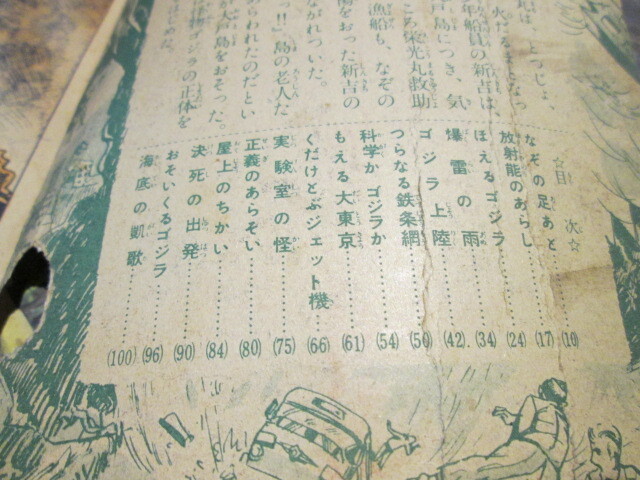 火だるまとなっ
丸は、とつじょ、
年船員の新吉は、
戸島につき、気
ころ栄光丸救助
漁船も、なぞの
傷をおった新吉の
ながれついた。
っ!!」島の老人た
らわれたのだとい
が大戸島をおそった。
怪物ゴジラの正体を
はじめた。
☆目 次☆
なぞの足あと……(10)
放射能のあらし……(17)
ほえるゴジラ……(24)
爆雷の雨……(34)
ゴジラ上陸……(42)
つらなる鉄条網……(50)
科学か ゴジラか……(54)
もえる大東京……(61)
くだけとぶジェット機……(66)
実験室の怪……(75)
正義のあらそい……(80)
屋上のちかい……(84)
決死の出発……(90)
おそいくるゴジラ……(96)
海底の凱歌……(100)